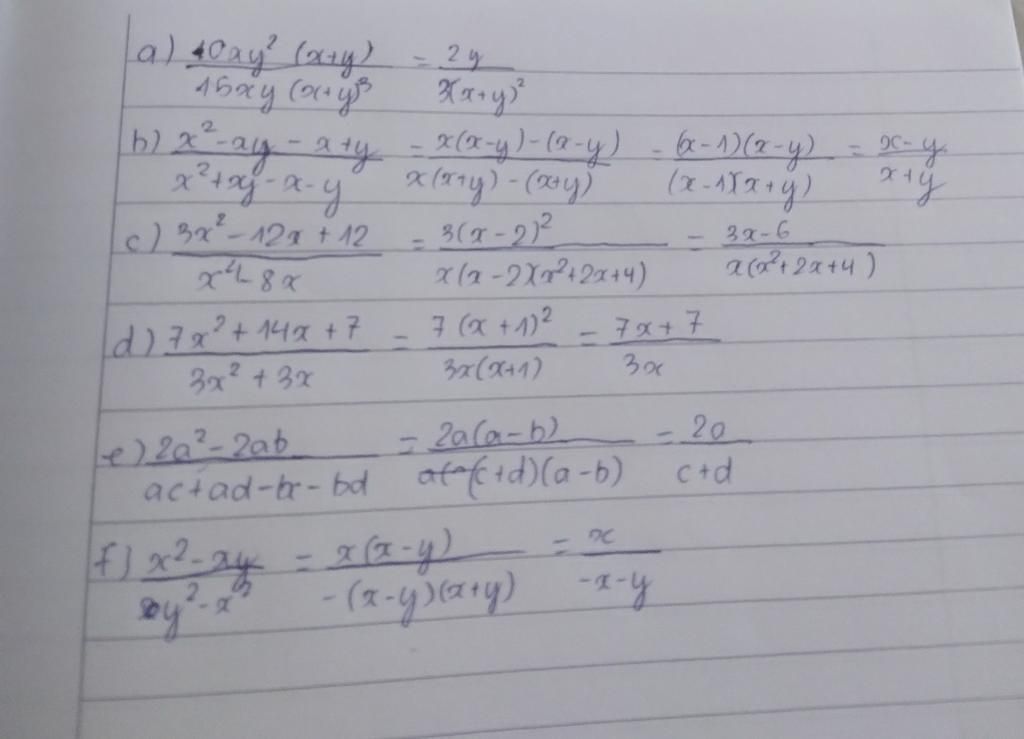 a) 10xy² (x+y) / 15xy (x+y)³ = 2y / 3(x+y)²
b) x²-xy-x+y / x²+xy-x-y = x(x-y)-(x-y) / x(x+y)-(x+y) = (x-1)(x-y) / (x-1)(x+y) = x-y / x+y
c) 3x²-12x+12 / x⁴-8x = 3(x-2)² / x(x-2)(x²+2x+4) = 3x-6 / x(x²+2x+4)
d) 7x²+14x+7 / 3x²+3x = 7(x+1)² / 3x(x+1) = 7x+7 / 3x
e) 2a²-2ab / ac+ad-bc-bd = 2a(a-b) / (c+d)(a-b) = 2a / c+d
f) x²-xy / y²-x² = x(x-y) / -(x-y)(x+y) = x / -x-y